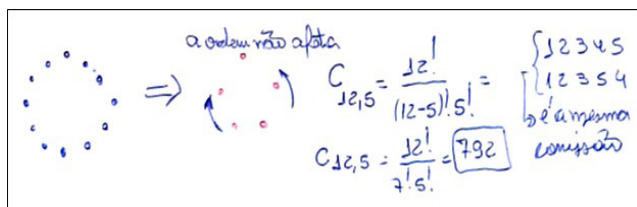 a ordem não afeta
C₁₂,₅ = 12! / (12-5)! 5! =
C₁₂,₅ = 12! / 7! 5! = 792
1 2 3 4 5
1 2 3 5 4
é a mesma
comissão